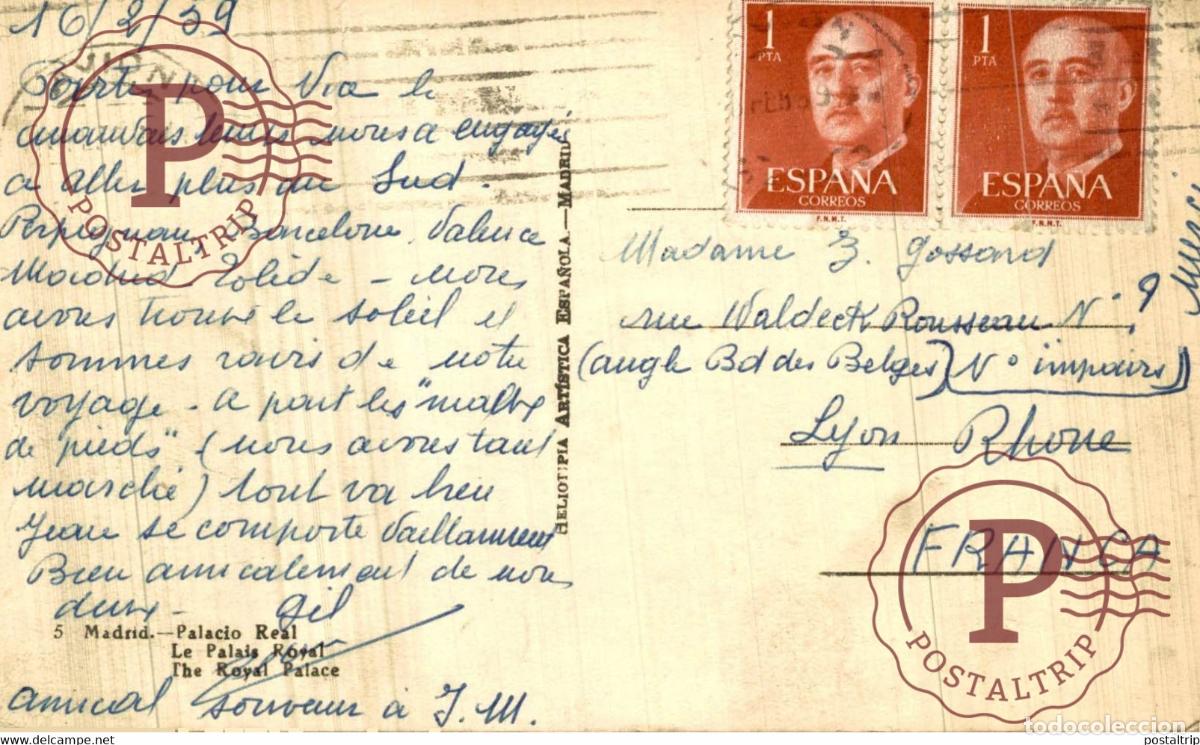 16/2/59
Partis pour Vic le
mauvais temps nous a engagés
a aller plus au Sud.
Perpignan, Barcelone, Valence
Madrid Tolède - nous
avons trouvé le soleil et
sommes ravis de notre
voyage - a part les "maltx
de pieds" (nous avons tant
marché) tout va bien
Jean se comporte vaillamment
Bien amicalement de nous
deux - Gil
5 Madrid.—Palacio Real
Le Palais Royal
The Royal Palace
amical souvenir à J.M.
HELIOTIPIA ARTÍSTICA ESPAÑOLA.—MADRID
1 PTA
ESPAÑA
CORREOS
F.N.M.T.
1 PTA
ESPAÑA
CORREOS
F.N.M.T.
Madame Z. Gossard
rue Waldeck Rousseau N° 9
(angle Bd des Belges) (N° impairs)
Lyon Rhone
FRANCA
P
POSTALTRIP
P
POSTALTRIP
todocoleccion
www.todocoleccion.net
postaltrip